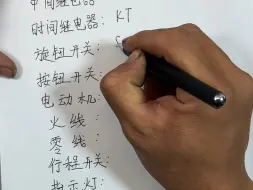 中间继电器
时间继电器：KT
旋钮开关：S
按钮开关：
电动机：
火线：
零线：
行程开关：
指示灯：